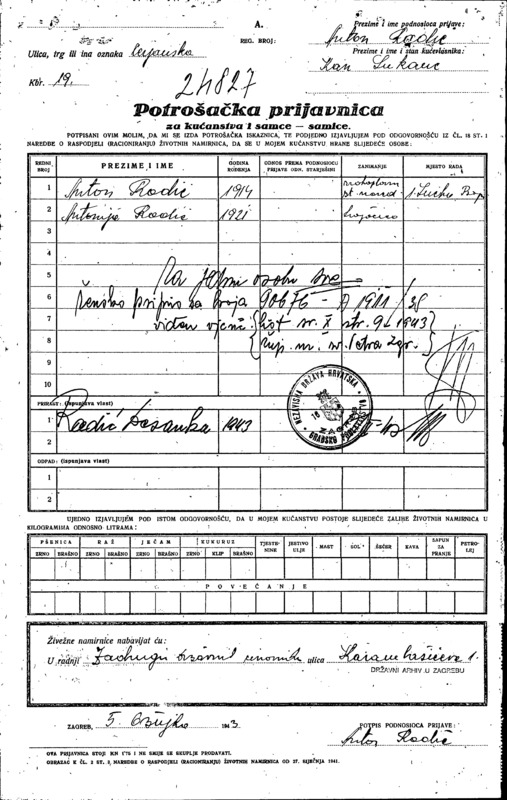 A.
REG. BROJ:
Prezime i ime podnosioca prijave:
Anton Radić
Ulica, trg ili ina oznaka
Prezime i ime i stan kućevlasnika:
Kbr. 19.
24827
Potrošačka prijavnica
za kućanstva i samce — samice.
POTPISANI OVIM MOLIM, DA MI SE IZDA POTROŠAČKA ISKAZNICA, TE PODJEDNO IZJAVLJUJEM POD ODGOVORNOŠĆU IZ ČL. 18 ST. 1
NAREDBE O RASPODJELI (RACIONIRANJU) ŽIVOTNIH NAMIRNICA, DA SE U MOJEM KUĆANSTVU HRANE SLIJEDEĆE OSOBE:
REDNI BROJ PREZIME I IME GODINA ROĐENJA ODNOS PREMA PODNOSIOCU PRIJAVE ODN. STARJEŠINI ZANIMANJE MJESTO RADA
1 Anton Radić 1914
2 Antonija Radić 1921
3
4
5 Na jednu osobu
6 90676
7 str. 92 1943
8
9
10
PRIRAST: (ispunjava vlast)
1 Radić Desanka 1943
2
NEZAVISNA DRŽAVA HRVATSKA
ZAGREB
ODPAD: (ispunjava vlast)
1
2
UJEDNO IZJAVLJUJEM POD ISTOM ODGOVORNOŠĆU, DA U MOJEM KUĆANSTVU POSTOJE SLIJEDEĆE ZALIHE ŽIVOTNIH NAMIRNICA U
KILOGRAMIMA ODNOSNO LITRAMA:
PŠENICA RAŽ JEČAM KUKURUZ TJESTENINE JESTIVO ULJE MAST SOL ŠEĆER KAVA SAPUN ZA PRANJE PETROLEJ
ZRNO BRAŠNO ZRNO BRAŠNO ZRNO BRAŠNO ZRNO KLIP BRAŠNO
POVEĆANJE
Živežne namirnice nabavljat ću:
U radnji ulica
DRŽAVNI ARHIV U ZAGREBU
ZAGREB, 5. ožujka 1943
POTPIS PODNOSIOCA PRIJAVE:
Anton Radić
OVA PRIJAVNICA STOJI KN 1'75 I NE SMIJE SE SKUPLJE PRODAVATI.
OBRAZAC K ČL. 2 ST. 2. NAREDBE O RASPODJELI (RACIONIRANJU) ŽIVOTNIH NAMIRNICA OD 27. SIJEČNJA 1941.